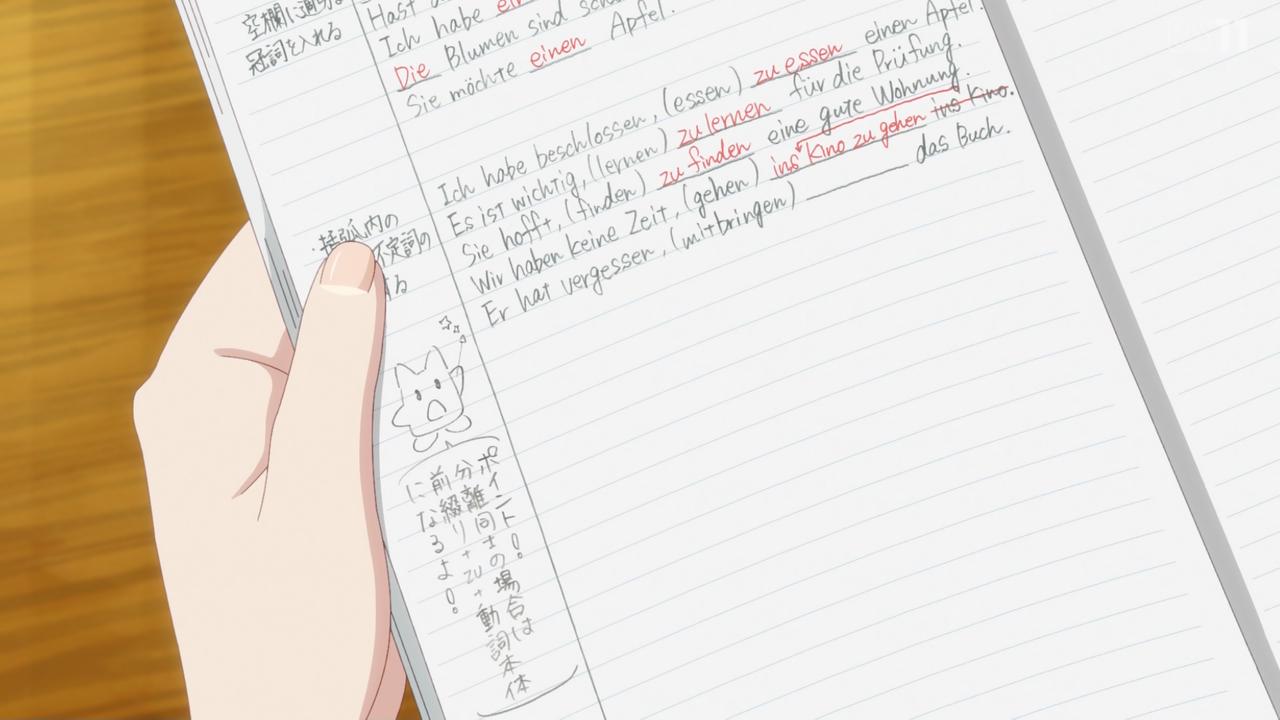 空欄に適切な
冠詞を入れる
Hast
Ich habe ein
Die Blumen sind
Sie möchte einen Apfel.
・括弧内の
不定詞の
る
Ich habe beschlossen, (essen) zu essen einen Apfel.
Es ist wichtig, (lernen) zu lernen für die Prüfung.
Sie hofft, (finden) zu finden eine gute Wohnung.
Wir haben keine Zeit, (gehen) ins Kino zu gehen ins Kino.
Er hat vergessen, (mitbringen) ________ das Buch.
ポイント!
分離同士の場合は
前綴り+zu+動詞本体
になるよ!